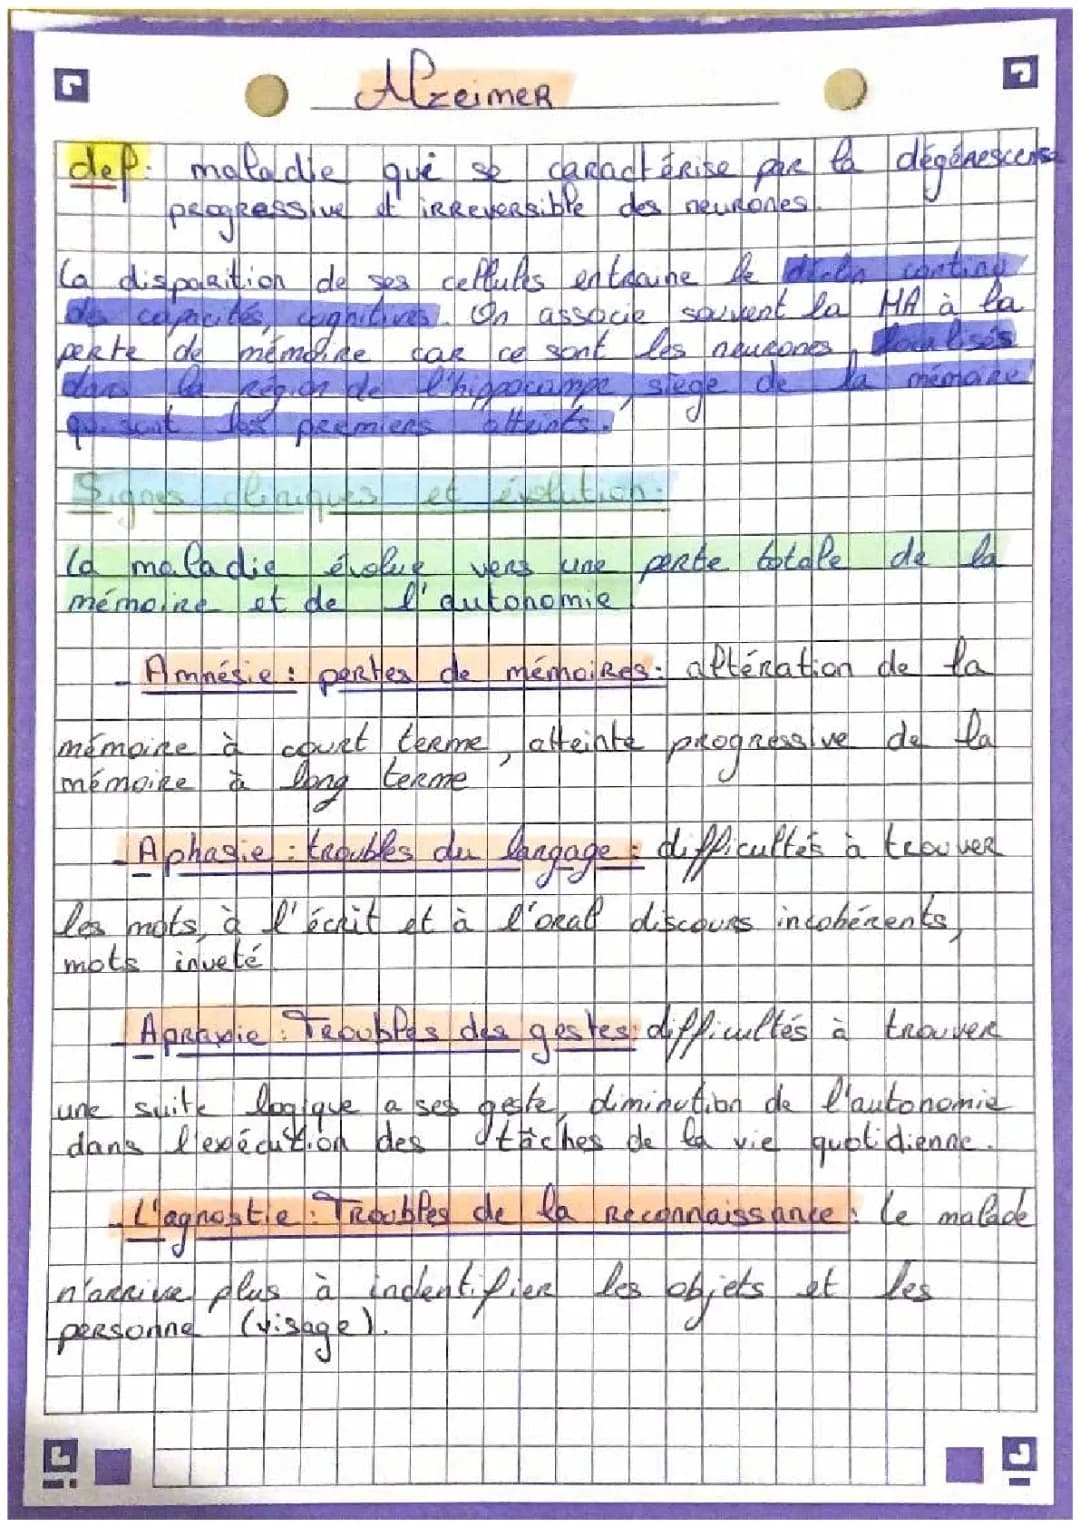 Alzeimer
def: maladie qui se caractérise par la dégénerescense
progressive et irreversible des neurones.
La disparition de ses cellules entraine le déclin continu
des capacités cognitives. On associe souvent la MA à la
perte de mémoire car ce sont les neurones, localisés
dans la région de l'hippocampe, siège de la mémoire
qui sont les premiers atteints.
Signes cliniques et évolution:
La maladie évolue vers une perte totale de la
mémoire et de l'autonomie
- Amnésie : pertes de mémoires: altération de la
mémoire à court terme, atteinte progressive de la
mémoire à long terme
- Aphasie : troubles du langage : difficultés à trouver
les mots, à l'écrit et à l'oral discours incohérents,
mots inveté
- Apraxie : Troubles des gestes: difficultés à trouver
une suite logique a ses geste, diminution de l'autonomie
dans l'exécution des tâches de la vie quotidienne.
- L'agnostie : Troubles de la reconnaissance : le malade
n'arrive plus à indentifier les objets et les
personne (visage).